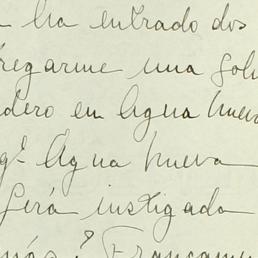 ha entrado dos
regarme una sol
dero en Agua Nueva
qe Agua Nueva
Será instigada
más? Francame